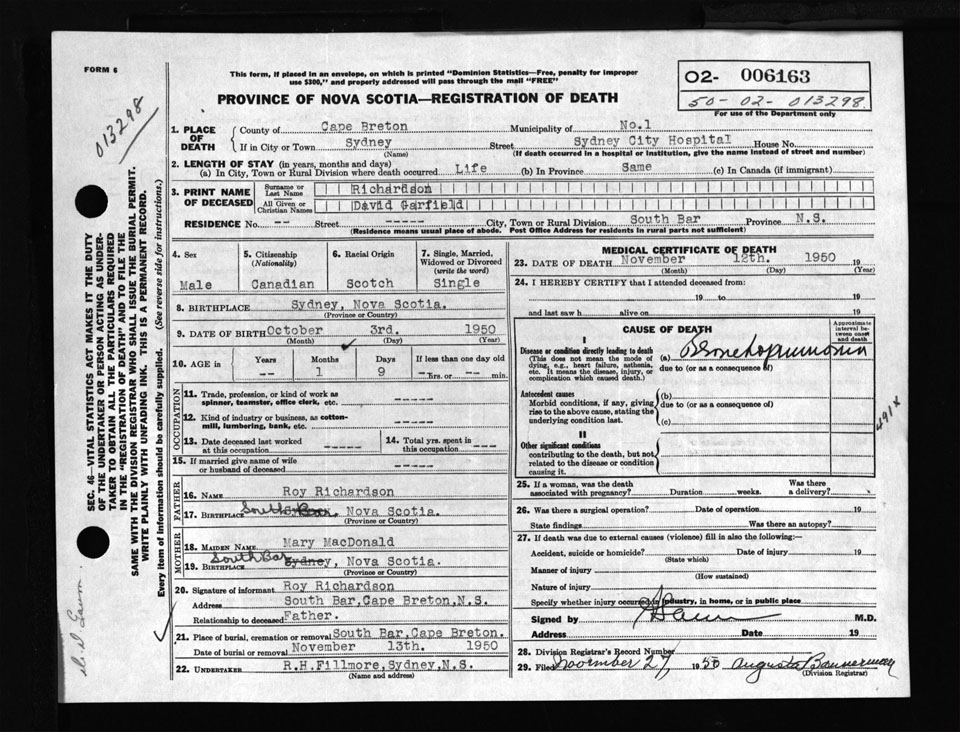 FORM 6
This form, if placed in an envelope, on which is printed "Dominion Statistics—Free, penalty for improper
use $300," and properly addressed will pass through the mail "FREE"
O2- 006163
50-02-013298.
For use of the Department only
PROVINCE OF NOVA SCOTIA—REGISTRATION OF DEATH
013298
1. PLACE OF DEATH
County of Cape Breton Municipality of No.1
If in City or Town Sydney Street Sydney City Hospital House No.
(Name) (If death occurred in a hospital or institution, give the name instead of street and number)
2. LENGTH OF STAY (in years, months and days)
(a) In City, Town or Rural Division where death occurred Life (b) In Province Same (c) In Canada (if immigrant)
3. PRINT NAME OF DECEASED
Surname or Last Name Richardson
All Given or Christian Names David Garfield
RESIDENCE No. -- Street ----- City, Town or Rural Division South Bar Province N.S.
(Residence means usual place of abode. Post Office Address for residents in rural parts not sufficient)
4. Sex
Male
5. Citizenship (Nationality)
Canadian
6. Racial Origin
Scotch
7. Single, Married, Widowed or Divorced (write the word)
Single
8. BIRTHPLACE Sydney, Nova Scotia.
(Province or Country)
9. DATE OF BIRTH October 3rd. 1950
(Month) (Day) (Year)
10. AGE in Years Months Days If less than one day old
-- 1 9 -- hrs. or -- min.
OCCUPATION
11. Trade, profession, or kind of work as spinner, teamster, office clerk, etc. -----
12. Kind of industry or business, as cotton-mill, lumbering, bank, etc. -----
13. Date deceased last worked at this occupation -----
14. Total yrs. spent in this occupation ---
15. If married give name of wife or husband of deceased -----
FATHER
16. NAME Roy Richardson
17. BIRTHPLACE South Bar, Nova Scotia.
(Province or Country)
MOTHER
18. MAIDEN NAME Mary MacDonald
19. BIRTHPLACE South Bar Sydney, Nova Scotia.
(Province or Country)
20. Signature of informant Roy Richardson
Address South Bar,Cape Breton,N.S.
Relationship to deceased Father.
21. Place of burial, cremation or removal South Bar,Cape Breton.
Date of burial or removal November 13th. 1950
22. UNDERTAKER R.H.Fillmore,Sydney,N.S.
(Name and address)
MEDICAL CERTIFICATE OF DEATH
23. DATE OF DEATH November 12th. 1950 19
(Month) (Day) (Year)
24. I HEREBY CERTIFY that I attended deceased from:
19 to 19
and last saw h alive on 19
CAUSE OF DEATH
Approximate interval between onset and death
I
Disease or condition directly leading to death
(This does not mean the mode of dying, e.g., heart failure, asthenia, etc. It means the disease, injury, or complication which caused death.)
(a) Bronchopneumonia
due to (or as a consequence of)
Antecedent causes
Morbid conditions, if any, giving rise to the above cause, stating the underlying condition last.
(b)
due to (or as a consequence of)
(c)
491X
II
Other significant conditions
contributing to the death, but not related to the disease or condition causing it.
25. If a woman, was the death associated with pregnancy? Duration weeks. Was there a delivery?
26. Was there a surgical operation? Date of operation 19
State findings Was there an autopsy?
27. If death was due to external causes (violence) fill in also the following:—
Accident, suicide or homicide? Date of injury 19
(State which)
Manner of injury
(How sustained)
Nature of injury
Specify whether injury occurred in industry, in home, or in public place
Signed by M.D.
Address Date 19
28. Division Registrar's Record Number
29. Filed November 27 1950 Augusta Bannerman
(Division Registrar)
SEC. 46—VITAL STATISTICS ACT MAKES IT THE DUTY
OF THE UNDERTAKER OR PERSON ACTING AS UNDER-
TAKER TO OBTAIN ALL THE PARTICULARS REQUIRED
IN THE "REGISTRATION OF DEATH" AND TO FILE THE
SAME WITH THE DIVISION REGISTRAR WHO SHALL ISSUE THE BURIAL PERMIT.
WRITE PLAINLY WITH UNFADING INK. THIS IS A PERMANENT RECORD.
Every item of information should be carefully supplied. (See reverse side for instructions.)